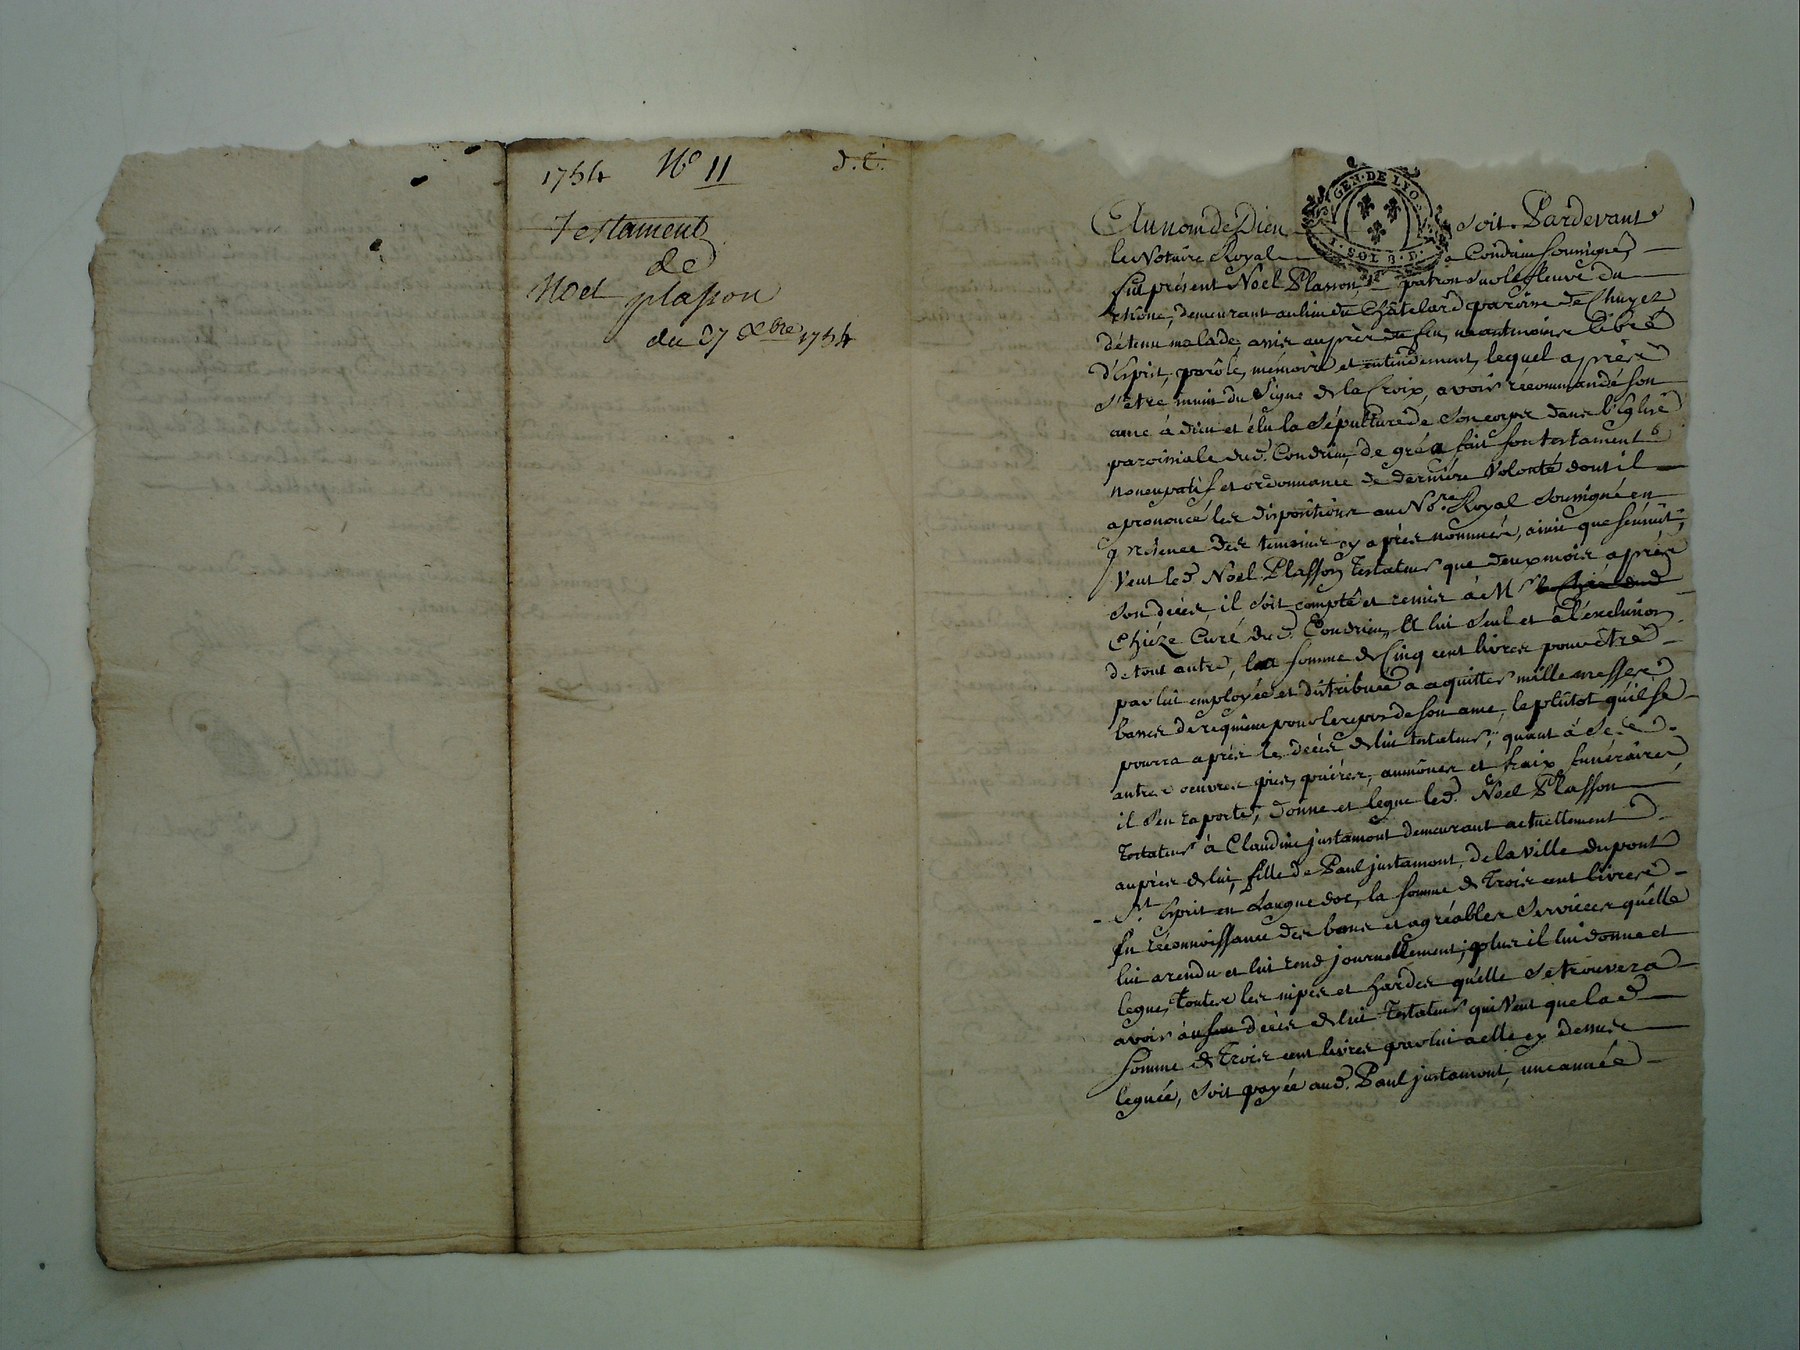 1754 N° 11 d. C.
Testament
de
Noel plasson
du 27 Xbre 1754
Au nom de Dieu soit. Pardevant
GEN. DE LYON
1. SOL 8. D.
le Notaire Royal a Condrieu soussigné
fut présent Noel Plasson, patron sur le fleuve du
Rhône, demeurant au lieu du Châtelard paroisse de Chuyez
détenu malade, assis auprès du feu, neantmoins libre
d'esprit, parôle, mémoire et entendement, lequel aprèse
s'être muni du Signe de la Croix, avoir récommandé son
ame à dieu et élu la Sépulture de son corps dans l'Eglise
paroissiale dud. Condrieu, de gré a fait son testament
noncupatif et ordonnance de dernière Volonté dont il
a prononcé les dispositions au No.re Royal soussigné en
présence des temoins cy après nommés, ainsi que s'ensuit,
Veut led. Noel Plasson Testateur que deux mois après
son décès il soit compté et remis à Mr
Chiéze Curé dud. Condrieu, A lui seul et à l'exclusion
de tout autre, la somme de Cinq cent livres pour être
par lui employée et distribuée a aquitter mille messes
basses de requiem pour le repos de son ame, le plûtot qu'il se
pourra après le décès de lui testateur, quant à Ses
autres oeuvres pies, prières, aumônes et fraix funéraires,
il s'en raporte, donne et legue led. Noel Plasson
Testateur à Claudine justamont demeurant actuellement
auprès de lui, fille de Paul justamont, de la Ville du pont
St. Esprit en Languedoc, la somme de Trois cent livres
En réconnoissance des bons et agréables Services qu'elle
lui a rendu et lui rend journellement; plus il lui donne et
legue, toutes les nipes et hardes qu'elle se trouvera
avoir au décès de lui Testateur qui Veut que lad.
somme de Trois cent livres par lui a elle cy dessus
leguée, soit payée aud. Paul justamont, une année